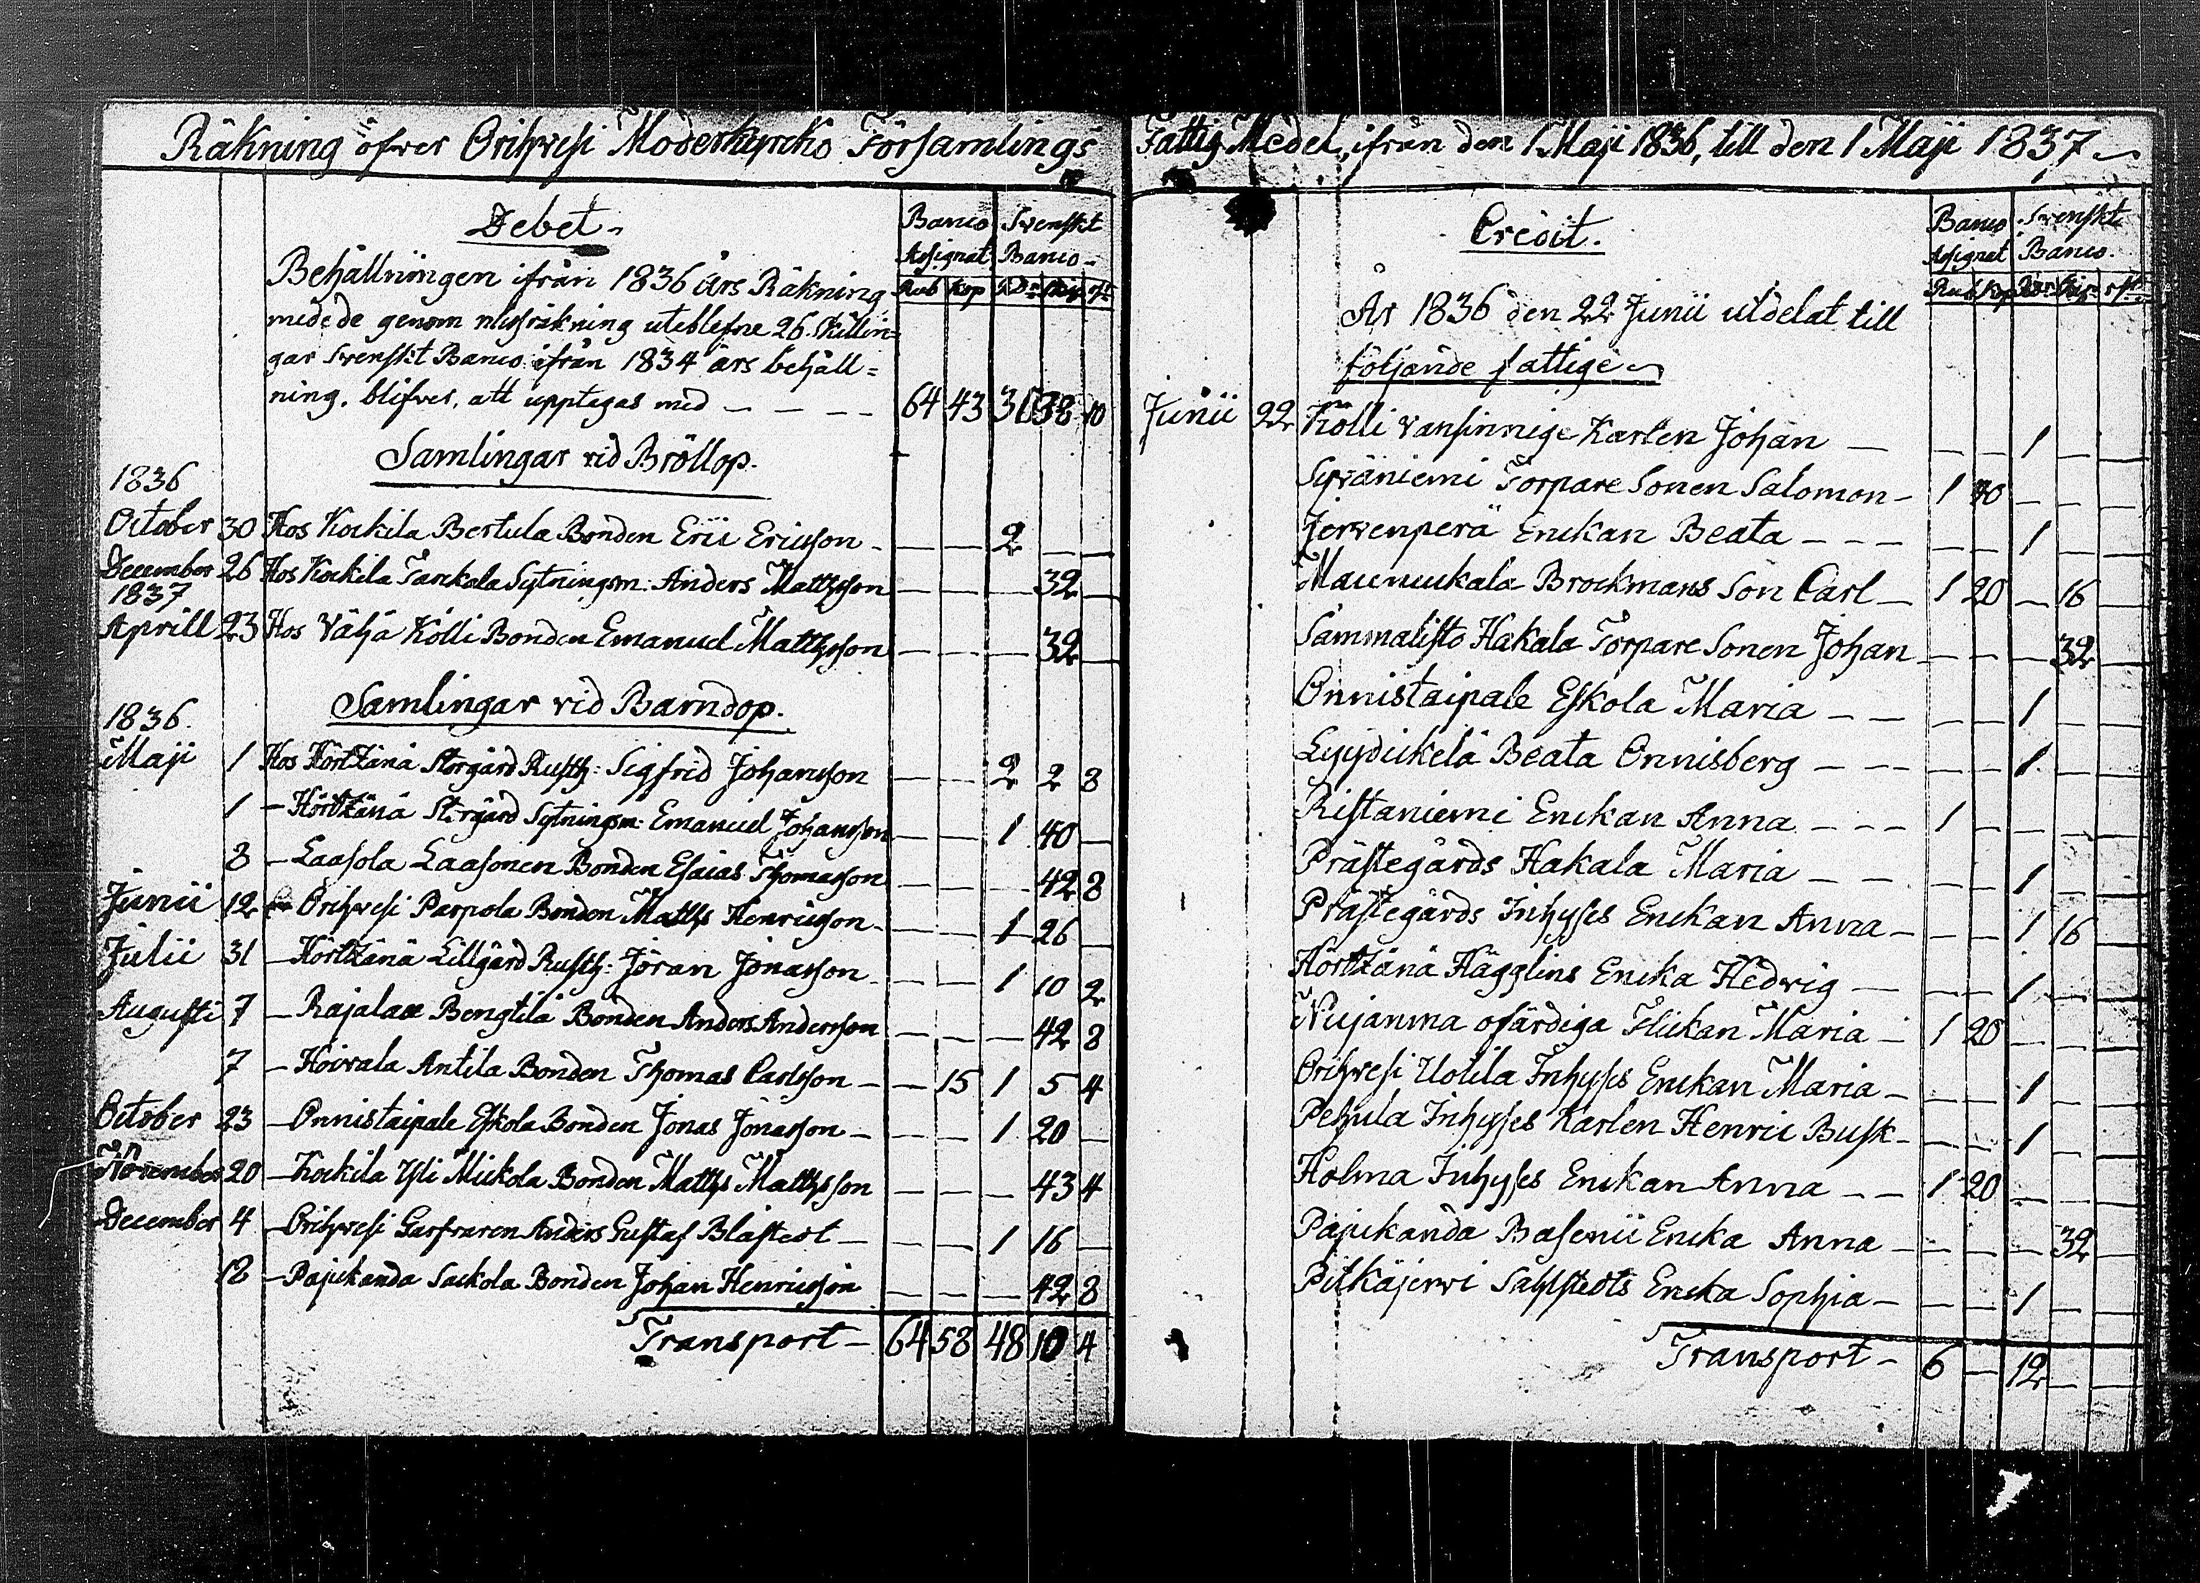 Räkning öfwer Orihwesi Moderkyrko Församlings Fattig Medel, ifrån den 1 Maji 1836, till den 1 Maji 1837
Debet
Banco Assignat Svenskt Banco
Rub Kop RDr Sk rst
Behållningen ifrån 1836 års Räkning
medede genom missräkning uteblefne 26 Skillin=
gar Svenskt Banco ifrån 1834 års behåll=
ning, blifver, att upptagas med — — — — 64 43 31 38 10
Samlingar vid Bröllop.
1836
October 30 Hos Kockila Bertula Bonden Eric Ericsson — — — 2 — —
December 26 Hos Kockila Tarckala Sytningsm: Anders Mattsson — — — 32 —
1837
Aprill 23 Hos Väljä Kölli Bonden Emanuel Mattsson — — — 32 —
Samlingar vid Barndop.
1836.
Maji 1 Hos Hörtsänä Storgård Rusth: Sigfrid Johansson — — 2 2 8
1 — Hörtsänä Storgård Sytningsm: Emanuel Johansson — — 1 40 —
8 — Laasola Laasonen Bonden Esaias Thomasson — — — 42 8
Junii 12 Orihwesi Parpola Bonden Matts Henricsson — — 1 26 —
Julii 31 — Hörtsänä Lillgård Rusth: Jöran Jonasson — — 1 10 2
Augusti 7 — Rajalax Bengtilä Bonden Anders Andersson — — — 42 8
7 — Koivala Antila Bonden Thomas Carlsson — — 15 1 5 4
October 23 — Onnistaipale Eskola Bonden Jonas Jonasson — — — 1 20 —
November 20 — Kockila Yli Mickola Bonden Matts Mattsson — — — 43 4
December 4 — Orihwesi Garfvaren Anders Gustaf Blåstedt — — — 1 16 —
18 — Pajukanda Sackola Bonden Johan Henricsson — — — 42 8
Transport — 64 58 48 10 4
Credit.
Banco Assignat Svenskt Banco.
Rub Kop RDr Sk rst
År 1836 den 22 Junii utdelat till
följande fattige
Junii 22 Kölli vansinnige Karlen Johan — — — 1 — —
Syväniemi Torpare Sonen Salomon — 1 40 — — —
Jervenperä Enckan Beata — — — — — 1 — —
Maunuukala Brockmans Son Carl — 1 20 — 16 —
Sammalisto Hakala Torpare Sonen Johan — — — 32 —
Onnistaipale Eskola Maria — — — — 1 — —
Lyydickelä Beata Onnisberg — — — — 1 — —
Ristaniemi Enckan Anna — — — 1 — — — —
Prästegårds Hakala Maria — — — — 1 — —
Prästegårds Inhyses Enckan Anna — — — 1 16 —
Hörtsänä Hägglins Encka Hedvig — — — 1 — —
Nujanma ofärdiga Flickan Maria — 1 20 — — —
Orihwesi Uotila Inhyses Enckan Maria — — — 1 — —
Pehula Inhyses Karlen Henric Busk — — — 1 — —
Holma Inhyses Enckan Anna — — 1 20 — — —
Pajukanda Basenii Encka Anna — — — — 32 —
Pitkäjerwi Sahlstedts Encka Sophia — — — 1 — —
Transport — 6 — 12 — —